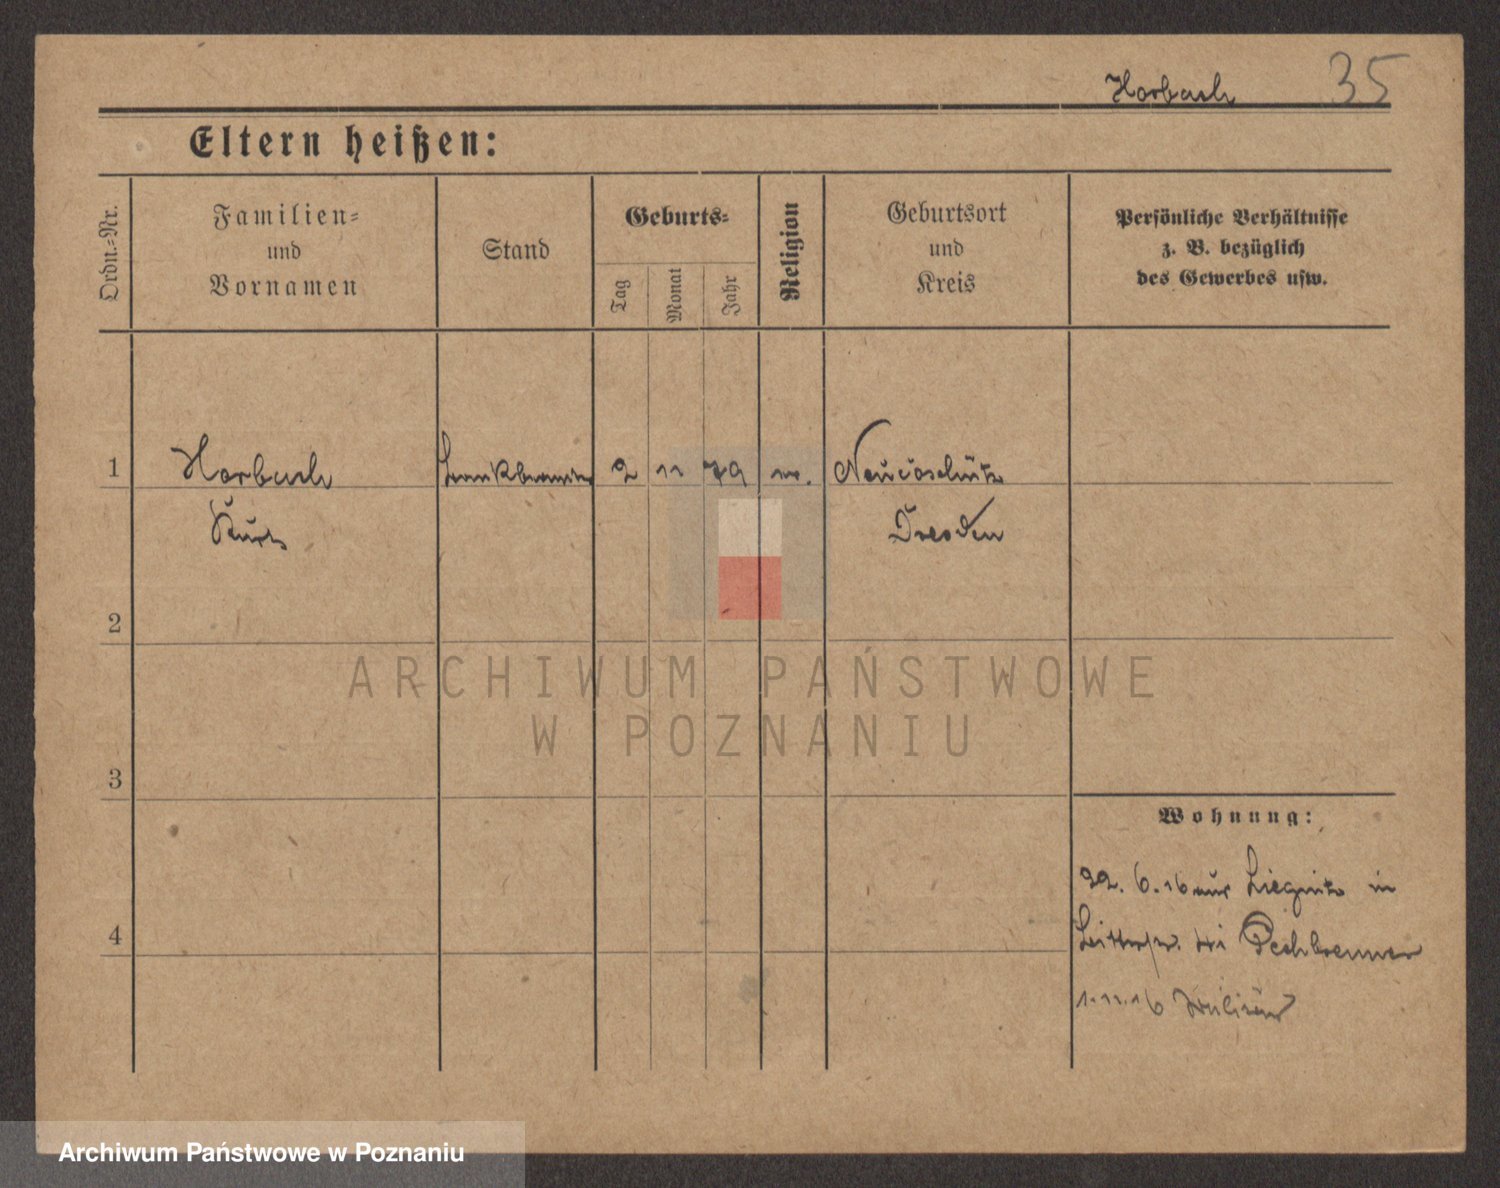 Horbach 35
Eltern heißen:
Ordn.-Nr.
Familien-
und
Vornamen
Stand
Geburts-
Tag
Monat
Jahr
Religion
Geburtsort
und
Kreis
Persönliche Verhältnisse
z. B. bezüglich
des Gewerbes usw.
1 Horbach 2 11 79
Kurt Dresden
2
ARCHIWUM PAŃSTWOWE
W POZNANIU
3
Wohnung:
22. 6. 16 aus Liegnitz in
4 bei Pechbrenner
1.11.16 Militär
Archiwum Państwowe w Poznaniu